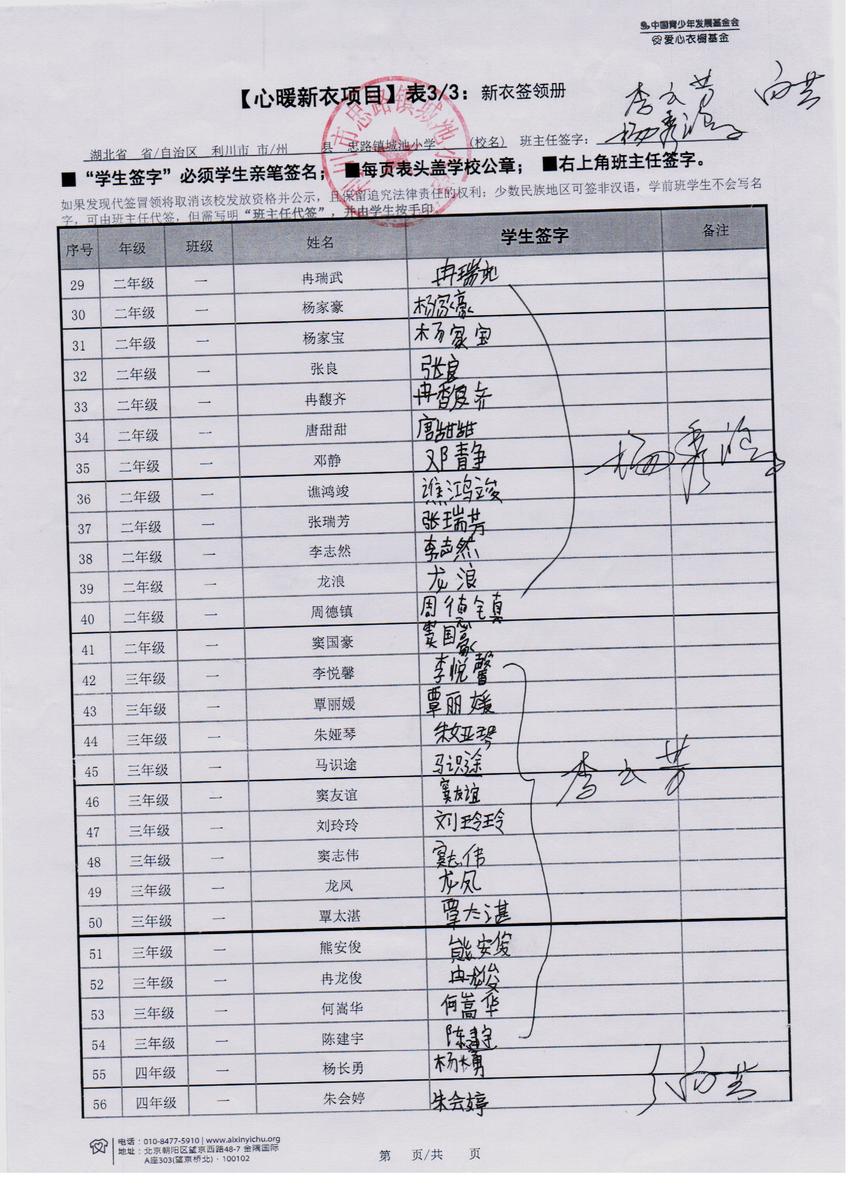 中国青少年发展基金会
爱心衣橱基金
【心暖新衣项目】表3/3：新衣签领册
李云芳 向芸
湖北省 省/自治区 利川市 市/州 县 忠路镇城池小学 (校名) 班主任签字：
■“学生签字”必须学生亲笔签名；■每页表头盖学校公章；■右上角班主任签字。
如果发现代签冒领将取消该校发放资格并公示，且保留追究法律责任的权利；少数民族地区可签非汉语，学前班学生不会写名
字，可由班主任代签，但需写明“班主任代签”，并由学生按手印。
序号 年级 班级 姓名 学生签字 备注
29 二年级 一 冉瑞武 冉瑞武
30 二年级 一 杨家豪 杨家豪
31 二年级 一 杨家宝 杨家宝
32 二年级 一 张良 张良
33 二年级 一 冉馥齐 冉馥齐
34 二年级 一 唐甜甜 唐甜甜
35 二年级 一 邓静 邓静
36 二年级 一 谯鸿竣 谯鸿竣
37 二年级 一 张瑞芳 张瑞芳
38 二年级 一 李志然 李志然
39 二年级 一 龙浪 龙浪
40 二年级 一 周德镇 周德镇
41 二年级 一 窦国豪 窦国豪
42 三年级 一 李悦馨 李悦馨
43 三年级 一 覃丽媛 覃丽媛
44 三年级 一 朱娅琴 朱娅琴
45 三年级 一 马识途 马识途
李云芳
46 三年级 一 窦友谊 窦友谊
47 三年级 一 刘玲玲 刘玲玲
48 三年级 一 窦志伟 窦志伟
49 三年级 一 龙凤 龙凤
50 三年级 一 覃太湛 覃太湛
51 三年级 一 熊安俊 熊安俊
52 三年级 一 冉龙俊 冉龙俊
53 三年级 一 何嵩华 何嵩华
54 三年级 一 陈建宇 陈建宇
55 四年级 一 杨长勇 杨长勇
向芸
56 四年级 一 朱会婷 朱会婷
电话：010-8477-5910 | www.aixinyichu.org
地址：北京朝阳区望京西路48-7 金隅国际
A座303(望京桥北)·100102
第 页/共 页